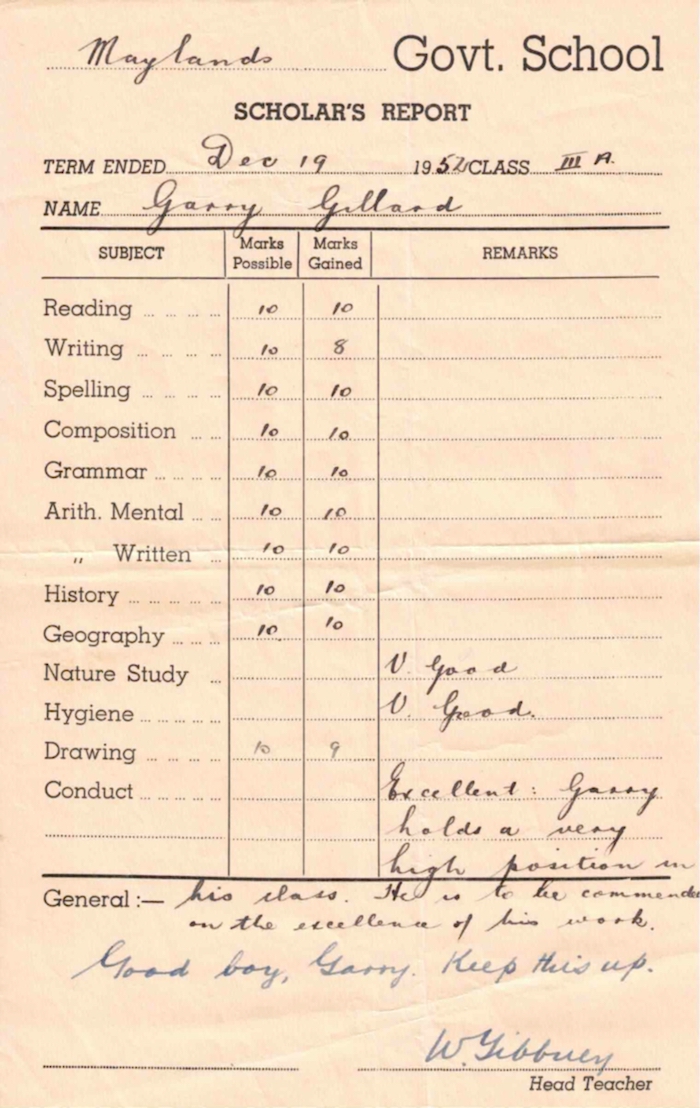 Maylands Govt. School
SCHOLAR'S REPORT
TERM ENDED Dec 19 1952 CLASS III A.
NAME Garry Gillard
SUBJECT Marks Possible Marks Gained REMARKS
Reading 10 10
Writing 10 8
Spelling 10 10
Composition 10 10
Grammar 10 10
Arith. Mental 10 10
„ Written 10 10
History 10 10
Geography 10 10
Nature Study V. Good
Hygiene V. Good.
Drawing 10 9
Conduct Excellent: Garry
holds a very
high position in
General :— his class. He is to be commended
on the excellence of his work.
Good boy, Garry. Keep this up.
W. Gibbney
Head Teacher